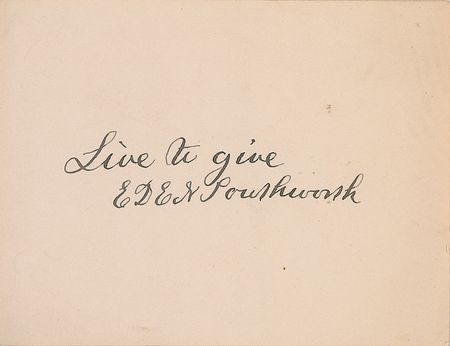 Live to give
E D E N Southworth